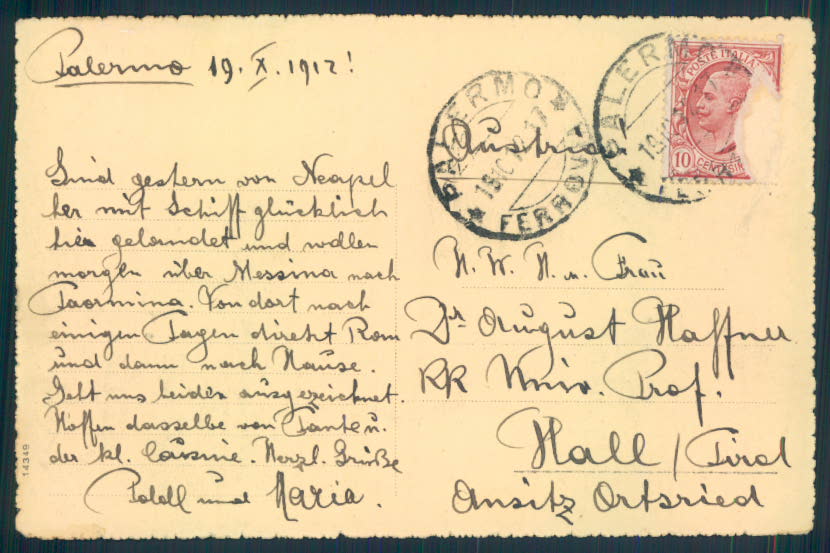 Palermo 19. X. 1912!
Sind gestern von Neapel
her mit Schiff glücklich
hier gelandet und wollen
morgen über Messina nach
Taormina. Von dort nach
einigen Tagen direkt Rom
und dann nach Hause.
Geht uns beiden ausgezeichnet.
Hoffen dasselbe von Tante u.
der kl. Cousine. Herzl. Grüße
und Maria.
14349
PALERMO
FERROVIA
PALERMO
POSTE ITALIANE
10 CENTESIMI
Austria
H. W. H. u. Frau
Dr August Haffner
KK Univ. Prof.
Hall / Tirol
Ansitz Ortsried